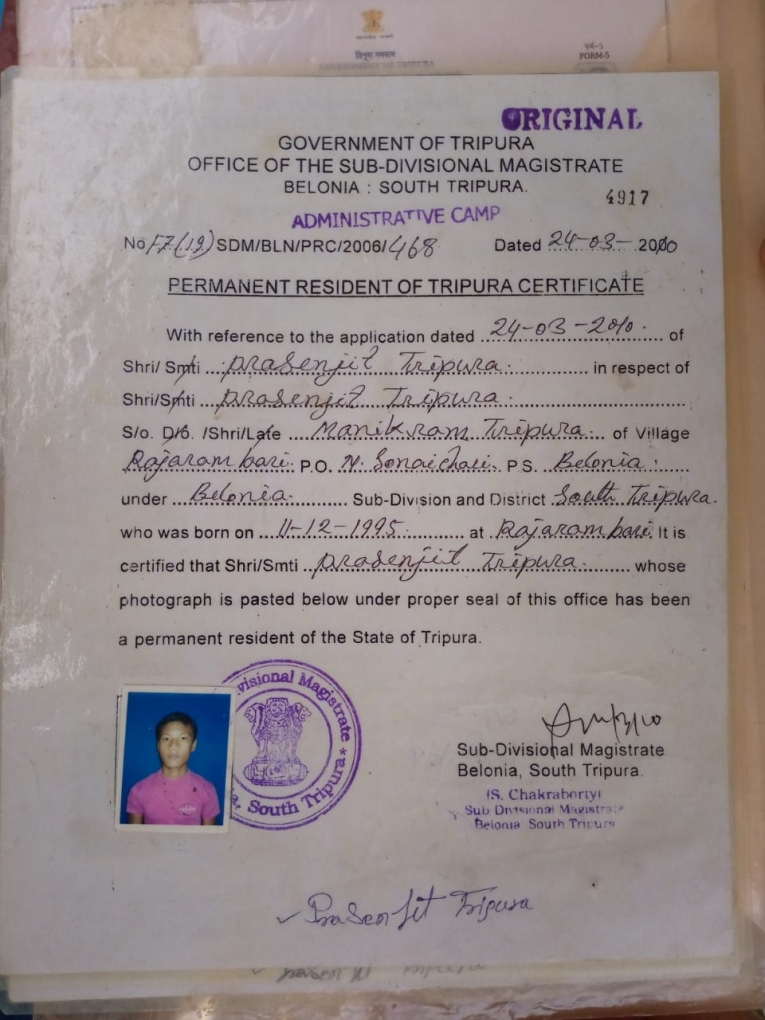 ফর্ম-5
FORM-5
GOVERNMENT OF TRIPURA
ORIGINAL
GOVERNMENT OF TRIPURA
OFFICE OF THE SUB-DIVISIONAL MAGISTRATE
BELONIA : SOUTH TRIPURA.
4917
ADMINISTRATIVE CAMP
No F7(19) SDM/BLN/PRC/2006/468 Dated 24-03- 2010
PERMANENT RESIDENT OF TRIPURA CERTIFICATE
With reference to the application dated 24-03-2010. of
Shri/ Smti Prasenjit Tripura. in respect of
Shri/Smti Prasenjit Tripura.
S/o. D/o. /Shri/Late Manikram Tripura. of Village
Rajaram bari. P.O. N. Sonaichari. P.S. Belonia.
under Belonia. Sub-Division and District South Tripura.
who was born on 11-12-1995. at Rajaram bari. It is
certified that Shri/Smti Prasenjit Tripura. whose
photograph is pasted below under proper seal of this office has been
a permanent resident of the State of Tripura.
visional Magistrate
South Tripura
Sub-Divisional Magistrate
Belonia, South Tripura.
(S. Chakraborty)
Sub Divisional Magistrate
Belonia South Tripura
Prasenjit Tripura